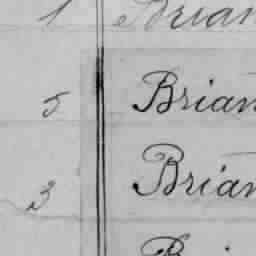 1 Brian
5 Brian
3 Brian